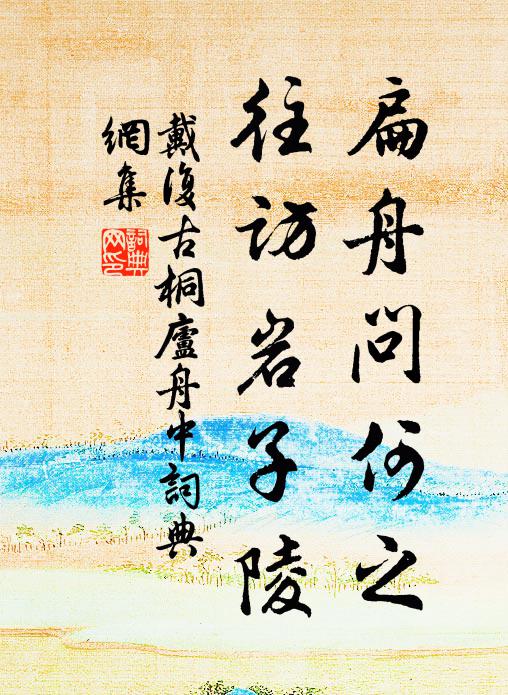 扁舟問何之
往訪岩子陵
戴復古桐廬舟中詞典
網集
詞典
網印